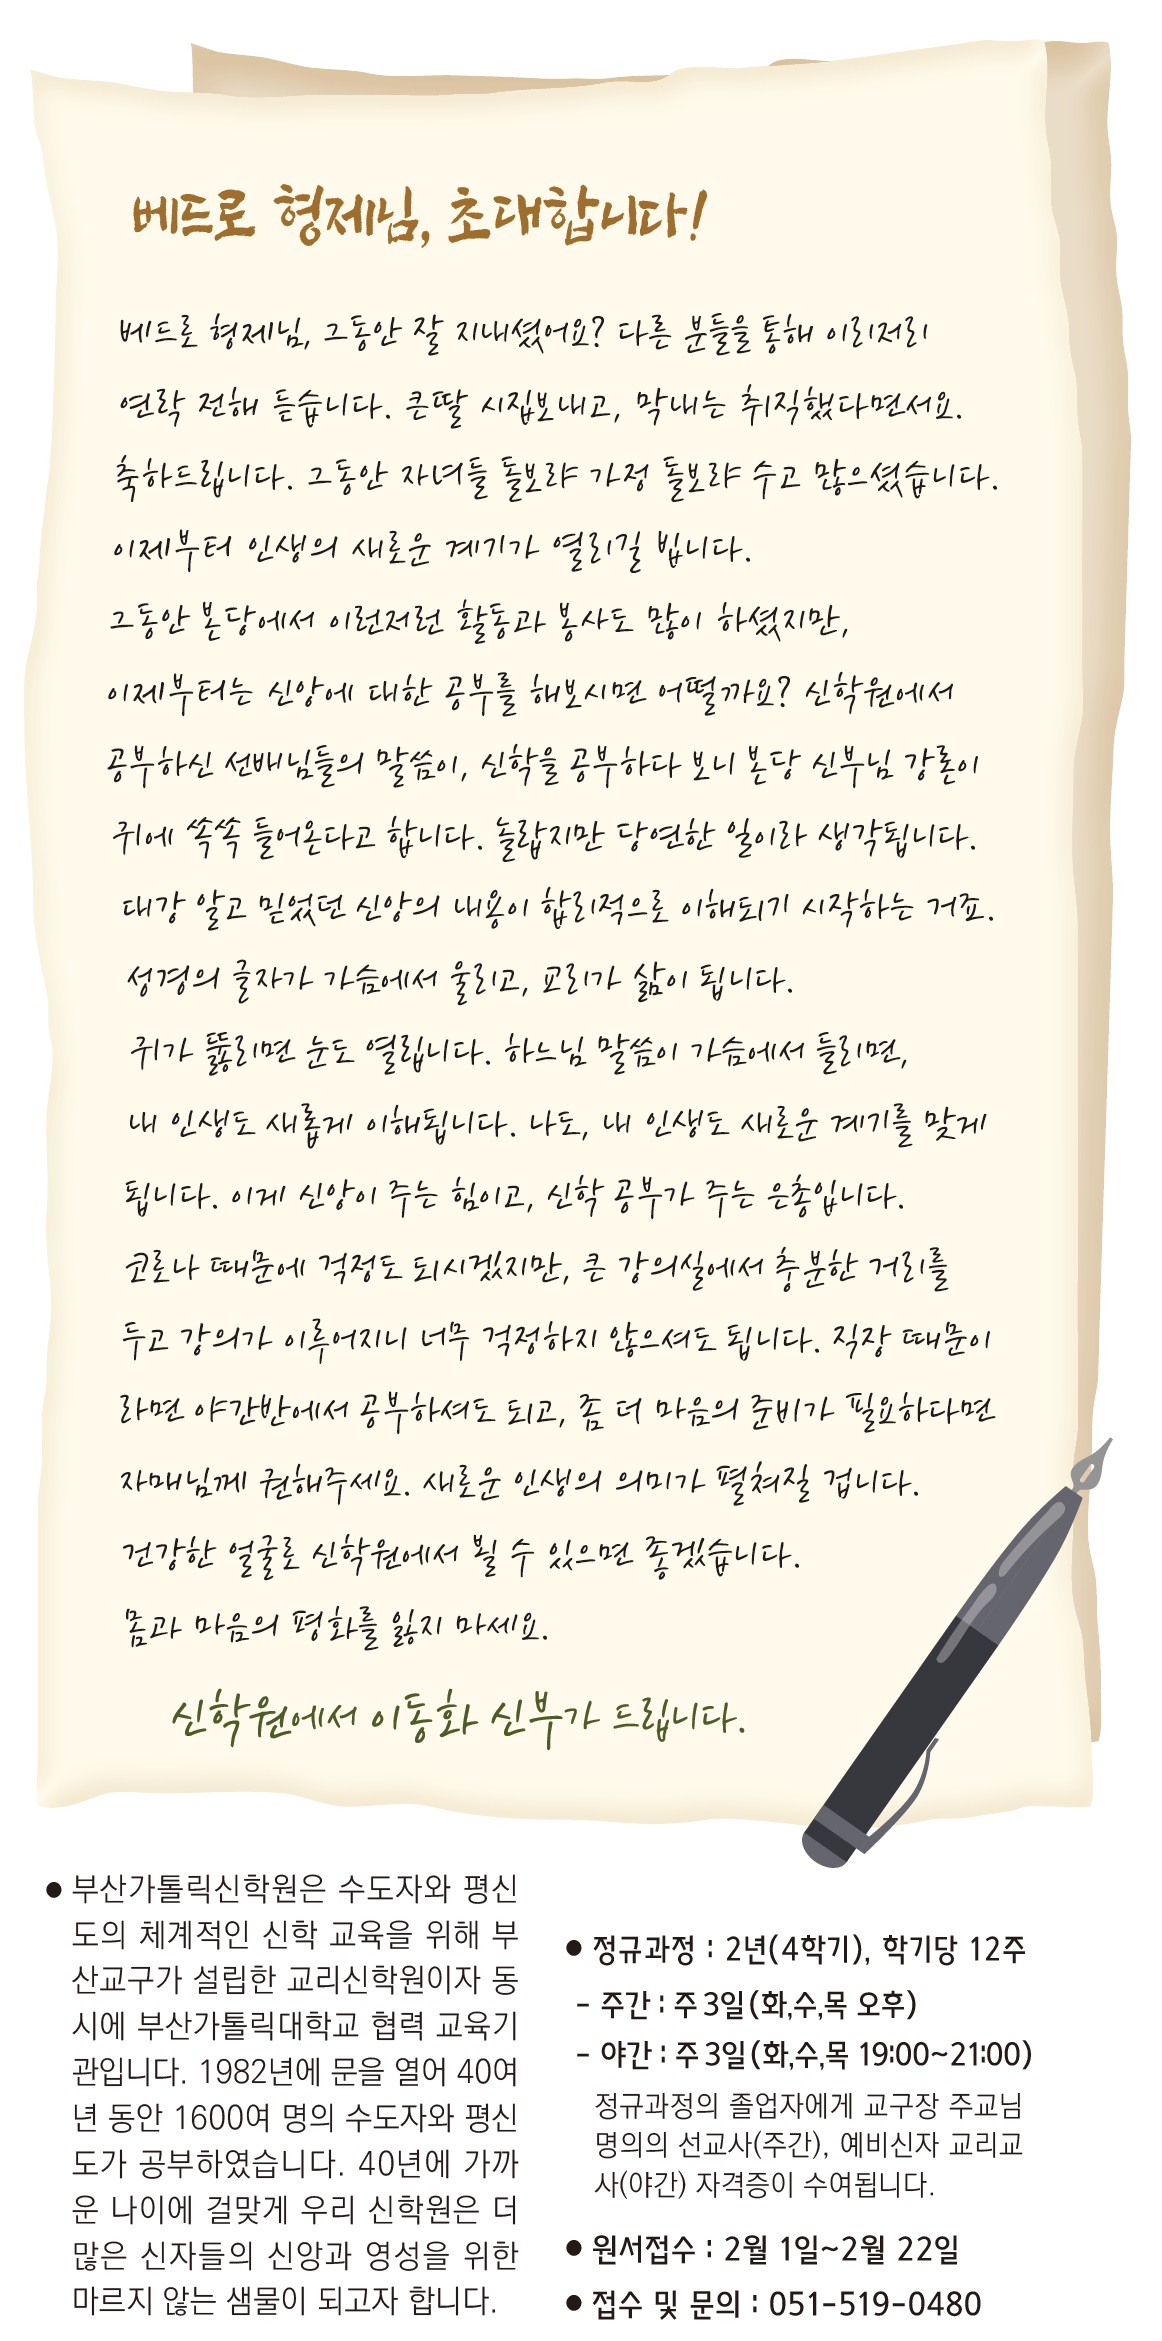 베드로 형제님, 초대합니다!
베드로 형제님, 그동안 잘 지내셨어요? 다른 분들을 통해 이리저리
연락 전해 듣습니다. 큰딸 시집보내고, 막내는 취직했다면서요.
축하드립니다. 그동안 자녀들 돌보랴 가정 돌보랴 수고 많으셨습니다.
이제부터 인생의 새로운 계기가 열리길 빕니다.
그동안 본당에서 이런저런 활동과 봉사도 많이 하셨지만,
이제부터는 신앙에 대한 공부를 해보시면 어떨까요? 신학원에서
공부하신 선배님들의 말씀이, 신학을 공부하다 보니 본당 신부님 강론이
귀에 쏙쏙 들어온다고 합니다. 놀랍지만 당연한 일이라 생각됩니다.
대강 알고 믿었던 신앙의 내용이 합리적으로 이해되기 시작하는 거죠.
성경의 글자가 가슴에서 울리고, 교리가 삶이 됩니다.
귀가 뚫리면 눈도 열립니다. 하느님 말씀이 가슴에서 들리면,
내 인생도 새롭게 이해됩니다. 나도, 내 인생도 새로운 계기를 맞게
됩니다. 이게 신앙이 주는 힘이고, 신학 공부가 주는 은총입니다.
코로나 때문에 걱정도 되시겠지만, 큰 강의실에서 충분한 거리를
두고 강의가 이루어지니 너무 걱정하지 않으셔도 됩니다. 직장 때문이
라면 야간반에서 공부하셔도 되고, 좀 더 마음의 준비가 필요하다면
자매님께 권해주세요. 새로운 인생의 의미가 펼쳐질 겁니다.
건강한 얼굴로 신학원에서 뵐 수 있으면 좋겠습니다.
몸과 마음의 평화를 잃지 마세요.
신학원에서 이동화 신부가 드립니다.
● 부산가톨릭신학원은 수도자와 평신
도의 체계적인 신학 교육을 위해 부
산교구가 설립한 교리신학원이자 동
시에 부산가톨릭대학교 협력 교육기
관입니다. 1982년에 문을 열어 40여
년 동안 1600여 명의 수도자와 평신
도가 공부하였습니다. 40년에 가까
운 나이에 걸맞게 우리 신학원은 더
많은 신자들의 신앙과 영성을 위한
마르지 않는 샘물이 되고자 합니다.
● 정규과정 : 2년(4학기), 학기당 12주
- 주간 : 주 3일(화,수,목 오후)
- 야간 : 주 3일(화,수,목 19:00~21:00)
정규과정의 졸업자에게 교구장 주교님
명의의 선교사(주간), 예비신자 교리교
사(야간) 자격증이 수여됩니다.
● 원서접수 : 2월 1일~2월 22일
● 접수 및 문의 : 051-519-0480